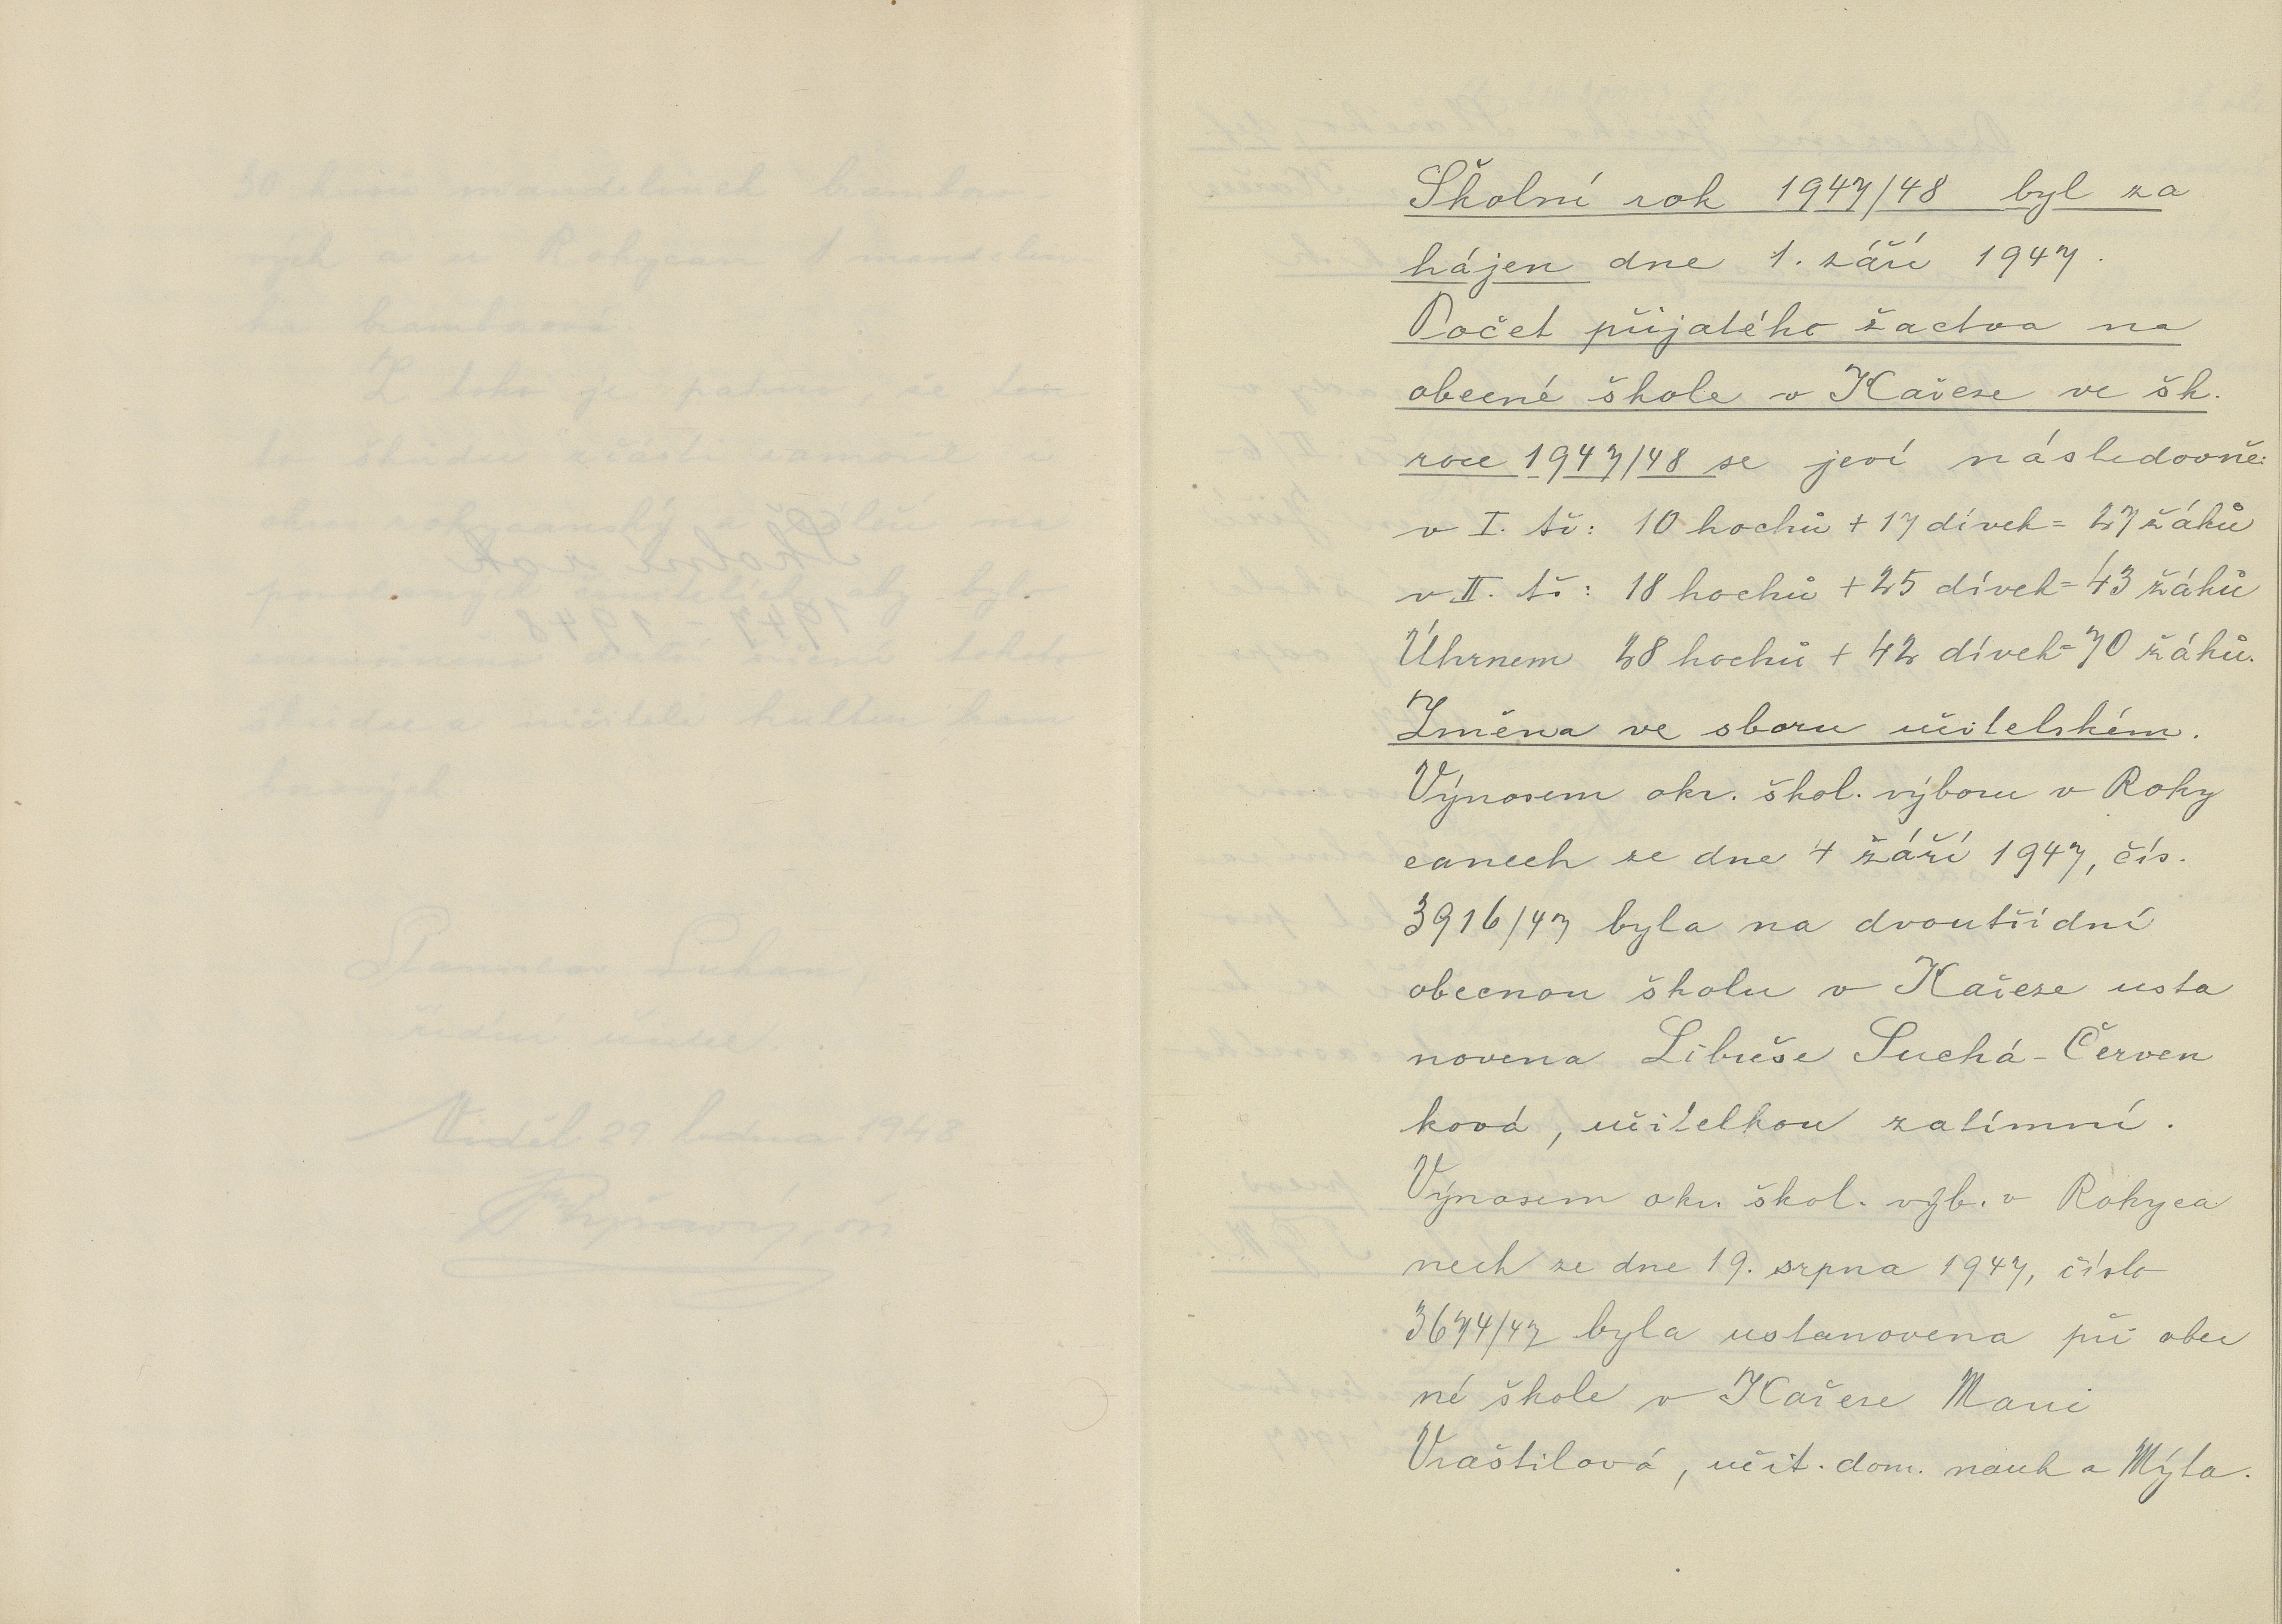 Školní rok 1947/48 byl za
hájen dne 1. září 1947.
Počet přijatého žactva na
obecné škole v Kařeze ve šk.
roce 1947/48 se jeví následovně:
v I. tř: 10 hochů + 17 dívek = 27 žáků
v II. tř: 18 hochů + 25 dívek = 43 žáků
Úhrnem 28 hochů + 42 dívek = 70 žáků.
Změna ve sboru učitelském.
Výnosem okr. škol. výboru v Roky
canech ze dne 4 září 1947, čís.
3916/47 byla na dvoutřídní
obecnou školu v Kařeze usta
novena Libuše Suchá - Červen
ková, učitelkou zatímní.
Výnosem okr. škol. výb. v Rokyca
nech ze dne 19. srpna 1947, číslo
3674/47 byla ustanovena při obec
né škole v Kařeze Marie
Vraštilová, učit. dom. nauk z Mýta.